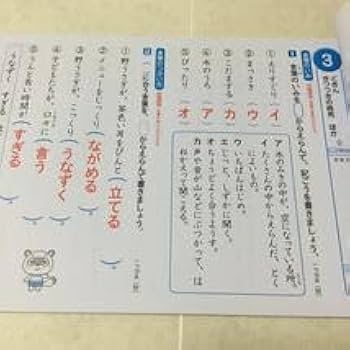 3
きつつきの商売 ほか
言葉のいみ
1 言葉のいみを、からえらんで、記ごうを書きましょう。
① えりすぐり(イ)
② (ウ)
③ こだまする(カ)
④ 水のうろ(ア)
⑤ ぴったり(オ)
ア 木のみきの中が、空になっている所。
イ たくさんの中からえらんだ、とくにいいもの。
ウ いちばんはじめ。
エ じっと、しずかに聞く。
オ ちょうどよく合うようす。
カ 声や音が山などにぶつかって、はねかえって聞こえる。
言葉のつかい方
2 ( )に合う言葉を、からえらんで書きましょう。
① 野うさぎが、茶色い耳をぴんと(立てる)。
② メニューをじっくり(ながめる)。
③ 野うさぎが、こっくり(うなずく)。
④ 子どもたちが、口々に(言う)。
⑤ うんと長い時間が(すぎる)。
うなずく すぎる